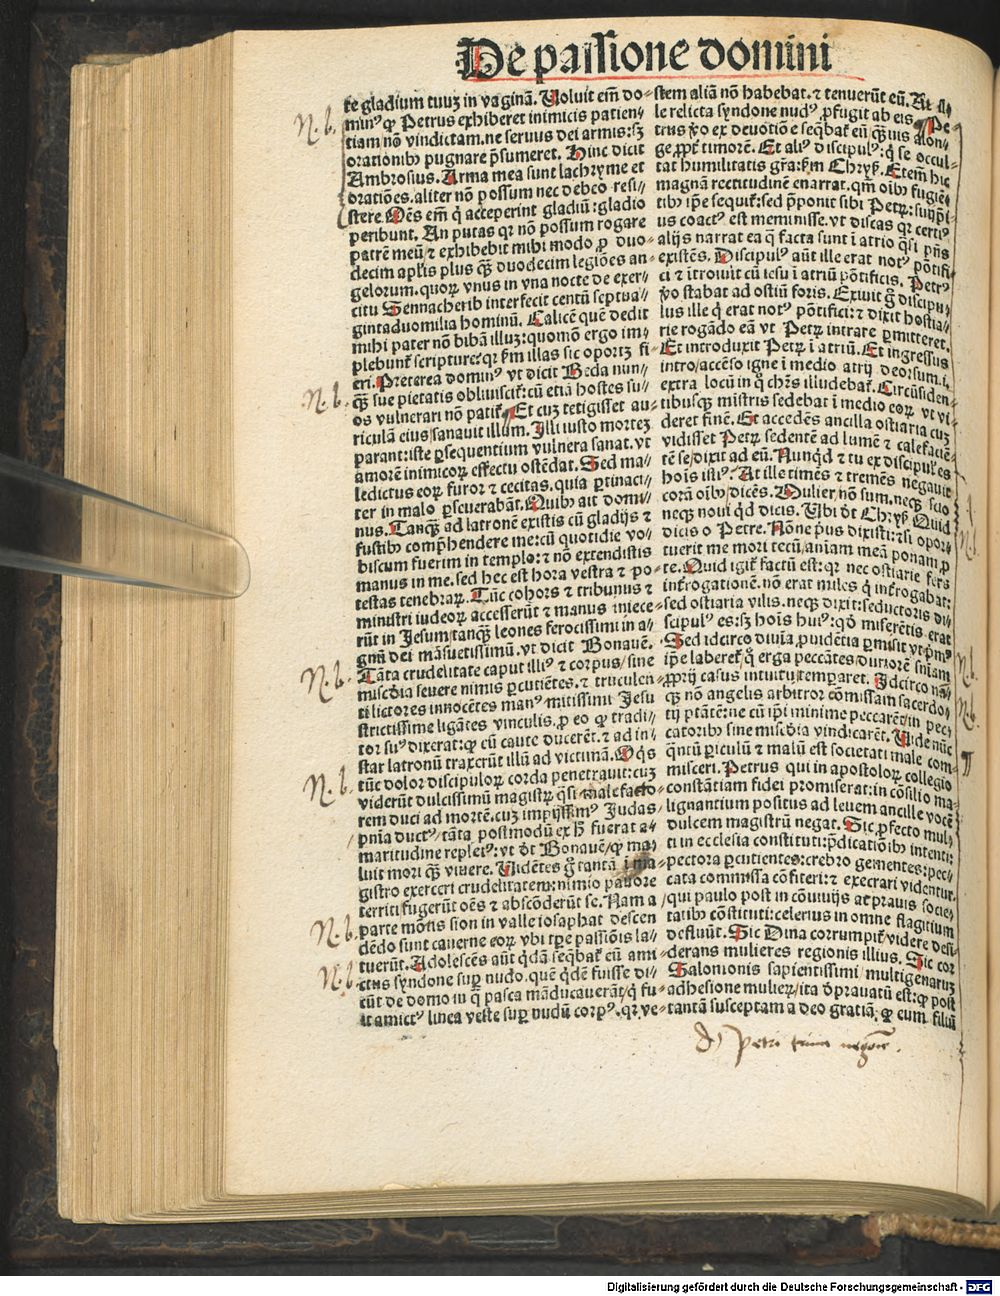 De passione domini
te gladium tuuʒ in vaginã. Voluit em̃ do⸗
minꝰ ꝙ Petrus exhiberet inimicis patien⸗
tiam nõ vindictam. ne seruus dei armis: sʒ
orationibꝰ pugnare p̃sumeret. Hinc dicit
Ambrosius. Arma mea sunt lachryme et
oratiões. aliter nõ possum nec debeo resi⸗
stere. Oẽs em̃ q̇ acceperint gladiũ: gladio
peribunt. An putas qꝛ nõ possum rogare
patrẽ meũ ⁊ exhibebit mihi modo ꝓ duo⸗
decim apl̃is plus q̃ʒ duodecim legiões an⸗
gelorum. quoꝝ vnus in vna nocte de exer⸗
citu Sennacherib interfecit centũ septua⸗
gintaduomilia hominũ. Calicẽ quẽ dedit
mihi pater nõ bibã illuʒ: quomõ ergo im⸗
plebunt᷑ scripture: qꝛ ẜm illas sic oportʒ fi⸗
eri. Preterea dominꝰ vt dicit Beda nun⸗
q̃ʒ sue pietatis obliuiscit᷑: cũ etiã hostes su⸗
os vulnerari nõ patit᷑. Et cuʒ tetigisset au⸗
riculã eius / sanauit illum. Illi iusto mortez
parant: iste ꝑsequentium vulnera sanat. vt
amorẽ inimicoꝝ effectu ostẽdat. Sed ma⸗
ledictus eoꝝ furor ⁊ cecitas. quia ꝑtinaci⸗
ter in malo ꝑseuerabãt. Quibꝰ ait domi⸗
nus. Tanq̃ʒ ad latronẽ existis cũ gladijs ⁊
fustibꝰ comp̃hendere me: cũ quotidie vo⸗
biscum fuerim in templo: ⁊ nõ extendistis
manus in me. sed hec est hora vestra ⁊ po⸗
testas tenebraꝝ. Tũc cohors ⁊ tribunus ⁊
ministri iudeoꝝ accesserũt ⁊ manus iniece⸗
rũt in Jesum / tanq̃ʒ leones ferocissimi in a⸗
gnũ dei mãsuetissimũ. vt dicit Bonauẽ.
Tãta crudelitate caput illiꝰ ⁊ corpus / sine
mis̃cdia seuere nimis ꝑcutiẽtes. ⁊ truculen⸗
ti lictores innocẽtes manꝰ mitissimi Jesu
strictissime ligãtes vinculis. ꝓ eo ꝙ tradi⸗
tor suꝰ dixerat: ꝙ cũ caute ducerẽt. ⁊ ad in⸗
star latronũ traxerũt illũ ad victimã. O q̃s
tũc dolor discipuloꝝ corda penetrauit: cuʒ
viderũt dulcissimũ magistꝝ q̃si malefacto⸗
rem duci ad mortẽ. cuʒ impijssimꝰ Judas
pñia ductꝰ / tãta postmodũ ex h̃ fuerat a⸗
maritudine repletꝰ: vt d̃t Bonauẽ / ꝙ ma⸗
luit mori q̃ʒ viuere. Vidẽtes g̊ tantã ĩ ma⸗
gistro exerceri crudelitatem: nimio pauore
territi fugerũt oẽs ⁊ abscõderũt se. Nam a
parte mõtis sion in valle iosaphat descen
dẽdo sunt cauerne eoꝝ vbi tp̃e passiõis la⸗
tuerũt. Adolescẽs aũt q̇dã seq̃bat᷑ eũ ami⸗
ctus syndone suꝑ nudo. quẽ q̇dẽ fuisse di⸗
cũt de domo in q̃ pasca mãducauerãt / q̇ fu⸗
it amictꝰ linea veste suꝑ nudũ corpꝰ. qꝛ ve⸗
stem aliã nõ habebat. ⁊ tenuerũt eũ. At il⸗
le relicta syndone nudꝰ ꝓfugit ab eis. Pe⸗
trus ꝟo ex deuotiõe seq̃bat᷑ eũ q̃uis a lon⸗
ge ꝓpt̃ timorẽ. Et aliꝰ discipulꝰ: q̇ se occul⸗
tat humilitatis gr̃a: ẜm Chryſ. Etem̃ hic
magnã rectitudinẽ enarrat. qm̃ oibꝰ fugiẽ⸗
tibꝰ ip̃e sequit᷑: sed p̃ponit sibi Petꝝ: 
us coactꝰ est meminisse. vt discas qꝛ certiꝰ
alijs narrat ea q̃ facta sunt ĩ atrio q̃si p̃ñs
existẽs. Discipulꝰ aũt ille erat notꝰ põtifi⸗
ci ⁊ ĩtroiuit cũ iesu ĩ atriũ põtificis. Petrꝰ
ꝟo stabat ad ostiũ foris. Exiuit g̊ discipu⸗
lus ille q̇ erat notꝰ põtifici: ⁊ dixit hostia⸗
rie rogãdo eã vt Petꝝ intrare ꝑmitteret.
Et introduxit Petꝝ ĩ atriũ. Et ingressus
intro / accẽso igne ĩ medio atrij deorsum. i.
extra locũ in q̊ chr̃s illudebat᷑. Circũsiden⸗
tibusq̃ʒ mĩstris sedebat ĩ medio eoꝝ vt vi⸗
deret finẽ. Et accedẽs ancilla ostiaria cuʒ
vidisset Petꝝ sedentẽ ad lumẽ ⁊ calefaciẽ⸗
tẽ se / dixit ad eũ. Nunq̇d ⁊ tu ex discipulꝭ es
hoĩs istiꝰ. At ille timẽs ⁊ tremẽs negauit
corã oĩbꝰ / dicẽs. Mulier / nõ sum. neq̃ʒ scio
neq̃ʒ noui q̇d dicis. Vbi d̃t Chryſ. Quid
dicis o Petre. Nõne p̃us dixisti: ⁊ si opor⸗
tuerit me mori tecũ / aĩam meã ponam ꝓ
te. Quid igit᷑ factũ est: qꝛ nec ostiarie fers
int̃rogationẽ. nõ erat miles q̇ int̃rogabat:
sed ostiaria vilis. neq̃ʒ dixit: seductoris di⸗
scipulꝰ es: sʒ hoĩs huiꝰ: qd̾ miserẽtis erat
Sed idcirco diuĩa ꝓuidẽtia ꝑmisit vt p̃mꝰ
ip̃e laberet᷑ / q̊ erga peccãtes / duriorẽ sñiam
ꝓprij casus intuitu / temꝑaret. Idcirco nã⸗
q̃ʒ nõ angelis arbitror cõmissam sacerdo⸗
tij ptãtẽ: ne cũ ip̃i minime peccarẽt / in pec⸗
catoribꝰ sine mis̃cdia vindicarẽt. Vide nũc
q̃ntũ ꝑiculũ ⁊ malũ est societati male com⸗
misceri. Petrus qui in apostoloꝝ collegio
constãtiam fidei promiserat: in cõsilio ma⸗
lignantium positus ad leuem ancille vocẽ
dulcem magistrũ negat. Sic ꝓfecto mul⸗
ti in ecclesia constituti: p̃dicatiõibꝰ intenti:
pectora ꝑcutientes: crebro gementes: pec⸗
cata commissa cõfiteri: ⁊ execrari videntur.
qui paulo post in cõuiuijs at prauis socie⸗
tatibꝰ cõstituti: celerius in omne flagitium
defluũt. Sic Dina corrumpit᷑ / videre desi⸗
derans mulieres regionis illius. Sic cor
Salomonis sapientissimi / multigenaruʒ
adhesione mulieꝝ / ita dep̃rauatũ est: ꝙ post
tantã susceptam a deo gratiã: ꝙ cum filiũ
N. b.
N. b.
N. b.
N. b.
N. b.
N. b.
N. b.
N. b.
N. b.
Petri trina
Digitalisierung gefördert durch die Deutsche Forschungsgemeinschaft - DFG